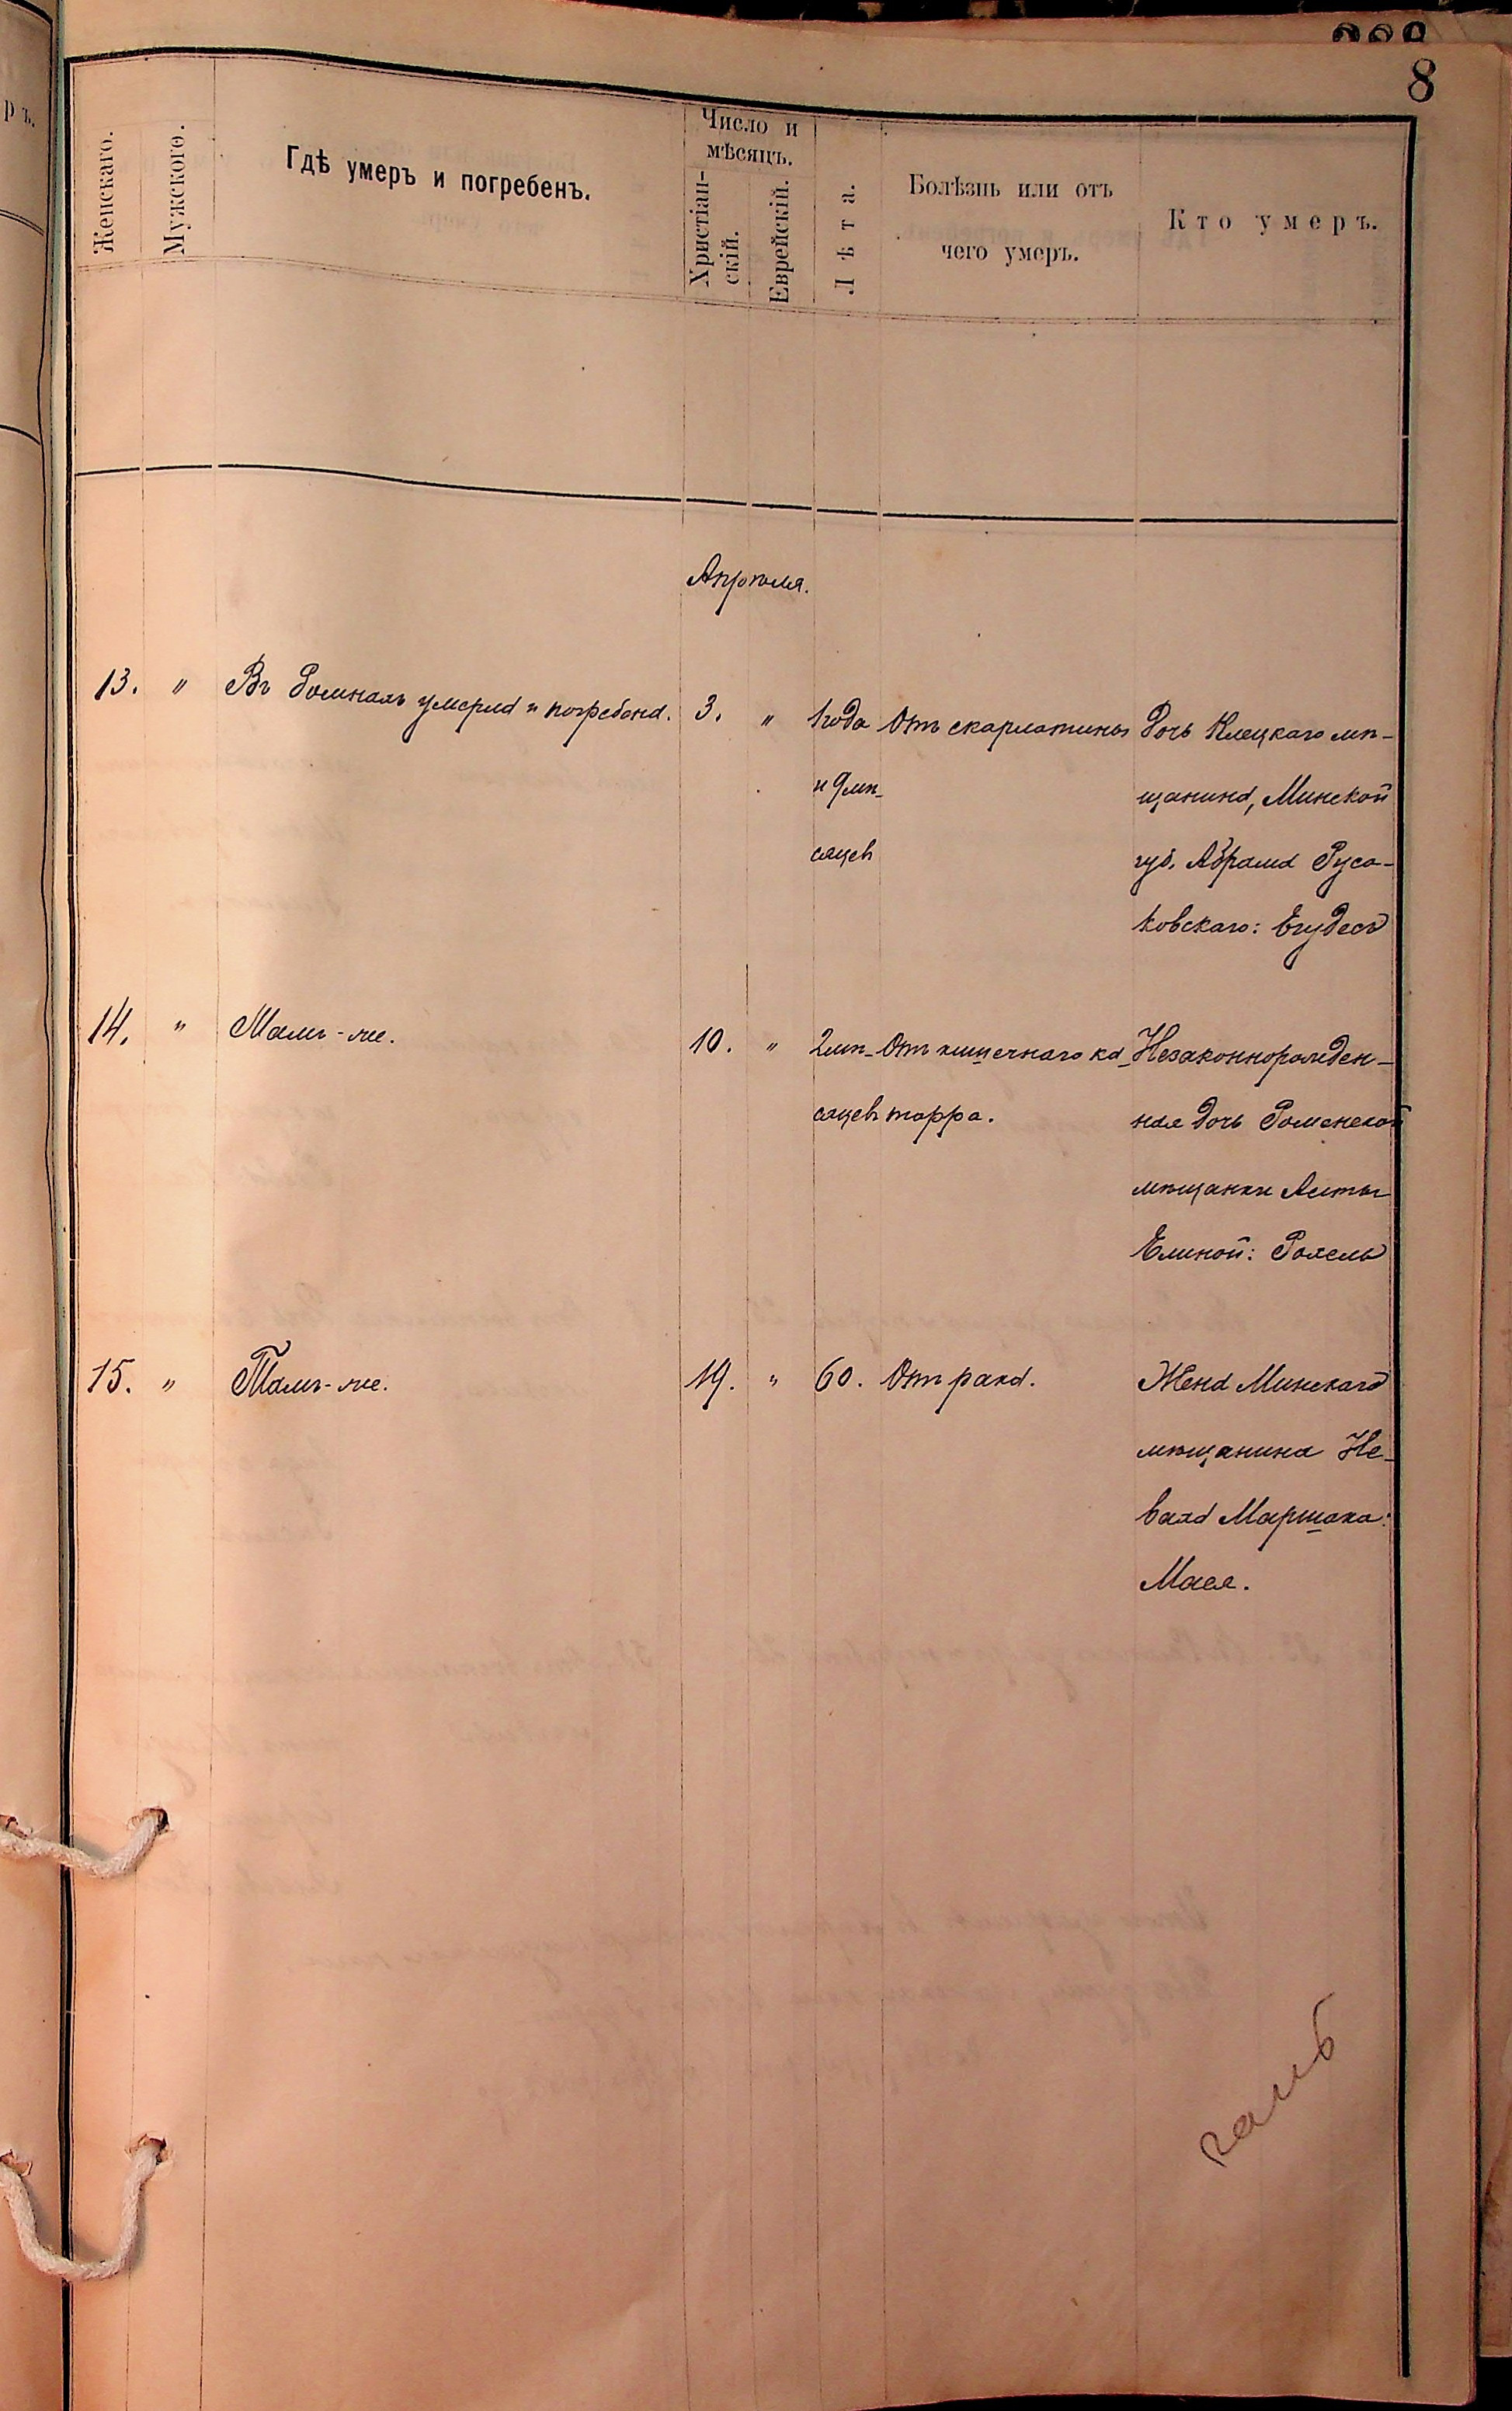 8
ръ.
Женскаго.
Мужского.
Гдѣ умеръ и погребенъ.
Число и
мѣсяцъ.
Христіан-
скій.
Еврейскій.
Лѣта.
Болѣзнь или отъ
чего умеръ.
Кто умеръ.
Апрѣля.
13. " Въ Ромнахъ умерла и погребена. 3. " 1 года Отъ скарлатины Дочь Клецкаго мѣ-
и 9 мѣ- щанина, Минской
сяцевъ губ. Абрама Руса-
ковскаго: Егудесъ
14. " Тамъ-же. 10. " 2 мѣ- Отъ кишечнаго ка- Незаконнорожден-
сяцевъ тарра. ная дочь Роменской
мѣщанки Аиты
Елиной: Рохель
15. " Тамъ-же. 19. " 60. Отъ рака. Жена Минскаго
мѣщанина Не-
ваха Маршака:
Мася.